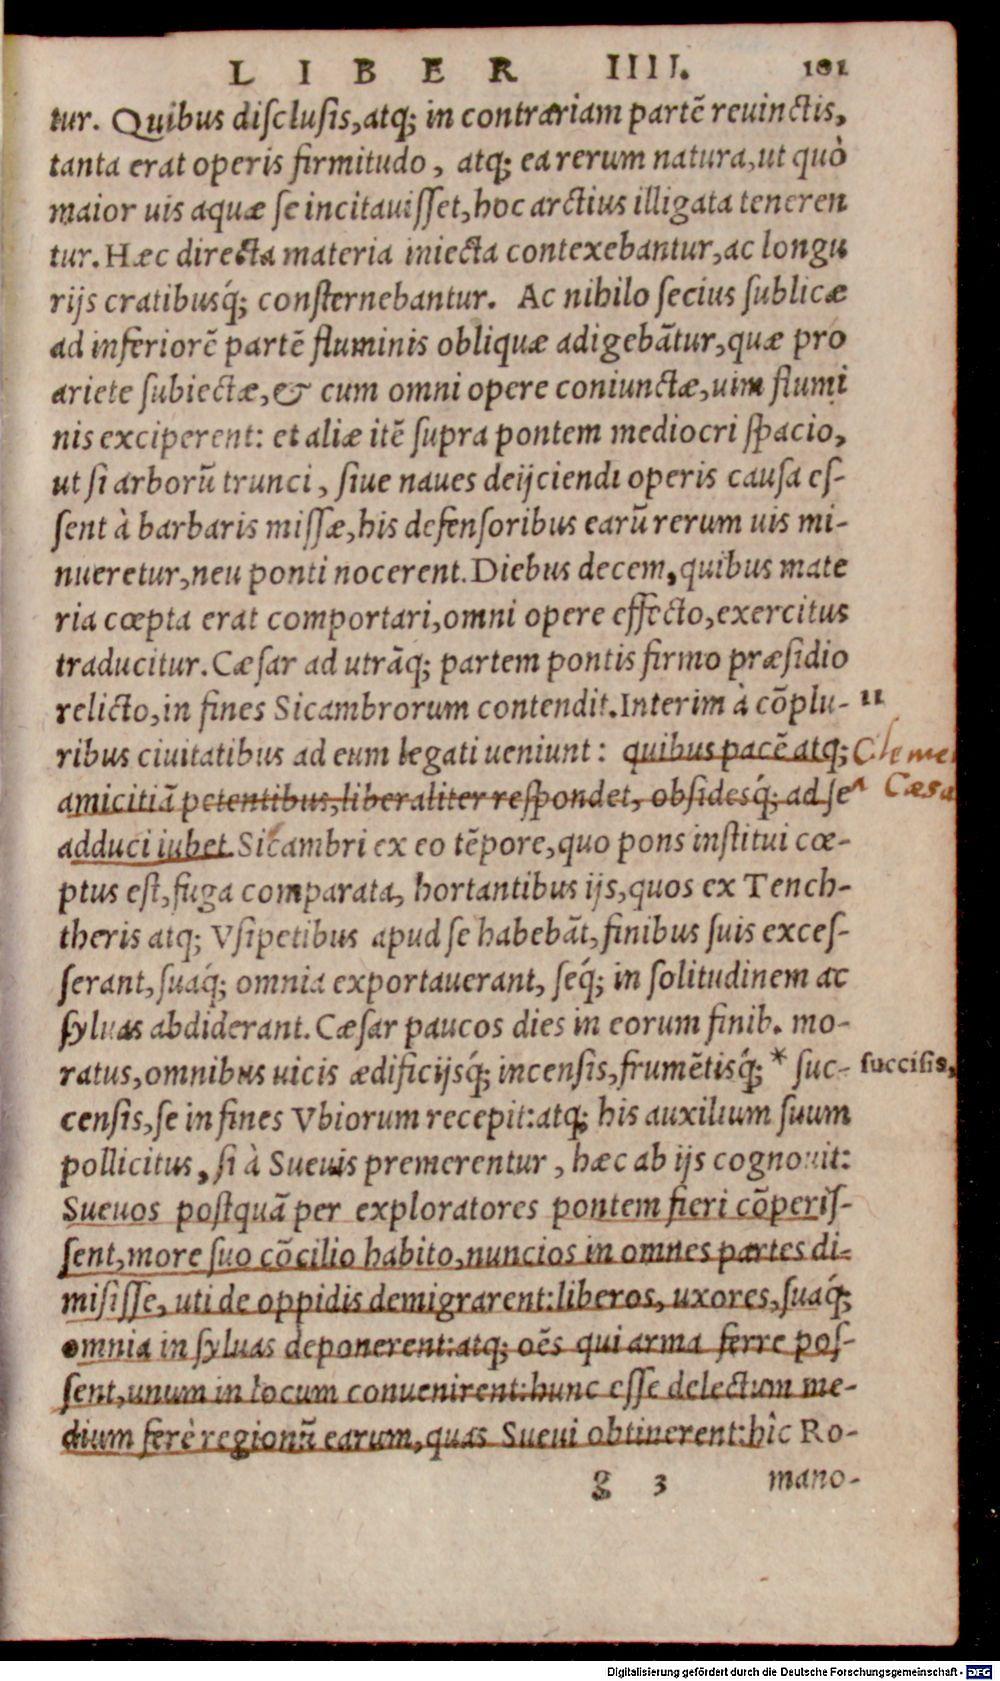 LIBER IIII. 101
tur. Quibus disclusis, atq; in contrariam partẽ reuinctis,
tanta erat operis firmitudo, atq; ea rerum natura, ut quò
maior uis aquæ se incitauisset, hoc arctius illigata teneren
tur. Hæc directa materia iniecta contexebantur, ac longu
rijs cratibusq́; consternebantur. Ac nihilo secius sublicæ
ad inferiorẽ partẽ fluminis obliquæ adigebãtur, quæ pro
ariete subiectæ, & cum omni opere coniunctæ, uim flumi
nis exciperent: et aliæ itẽ supra pontem mediocri spacio,
ut si arborũ trunci, siue naues deijciendi operis causa es-
sent à barbaris missæ, his defensoribus earũ rerum uis mi-
nueretur, neu ponti nocerent. Diebus decem, quibus mate
ria cœpta erat comportari, omni opere effecto, exercitus
traducitur. Cæsar ad utrãq; partem pontis firmo præsidio
relicto, in fines Sicambrorum contendit. Interim à cõplu- 11
ribus ciuitatibus ad eum legati ueniunt: quibus pacẽ atq;
amicitiã petentibus, liberaliter respondet, obsidesq́; ad se
adduci iubet. Sicambri ex eo tẽpore, quo pons institui cœ-
ptus est, fuga comparata, hortantibus ijs, quos ex Tench-
theris atq; Vsipetibus apud se habebãt, finibus suis exces-
serant, suaq́; omnia exportauerant, seq́; in solitudinem ac
syluas abdiderant. Cæsar paucos dies in eorum finib. mo-
ratus, omnibus uicis ædificijsq́; incensis, frumẽtisq́; * suc- succisis,
censis, se in fines Vbiorum recepit: atq; his auxilium suum
pollicitus, si à Sueuis premerentur, hæc ab ijs cognouit:
Sueuos postquã per exploratores pontem fieri cõperis-
sent, more suo cõcilio habito, nuncios in omnes partes di-
misisse, uti de oppidis demigrarent: liberos, uxores, suaq́;
omnia in syluas deponerent: atq; oẽs qui arma ferre pos-
sent, unum in locum conuenirent: hunc esse delectum me-
dium ferè regionũ earum, quas Sueui obtinerent: hîc Ro-
g 3 mano-
Digitalisierung gefördert durch die Deutsche Forschungsgemeinschaft - DFG